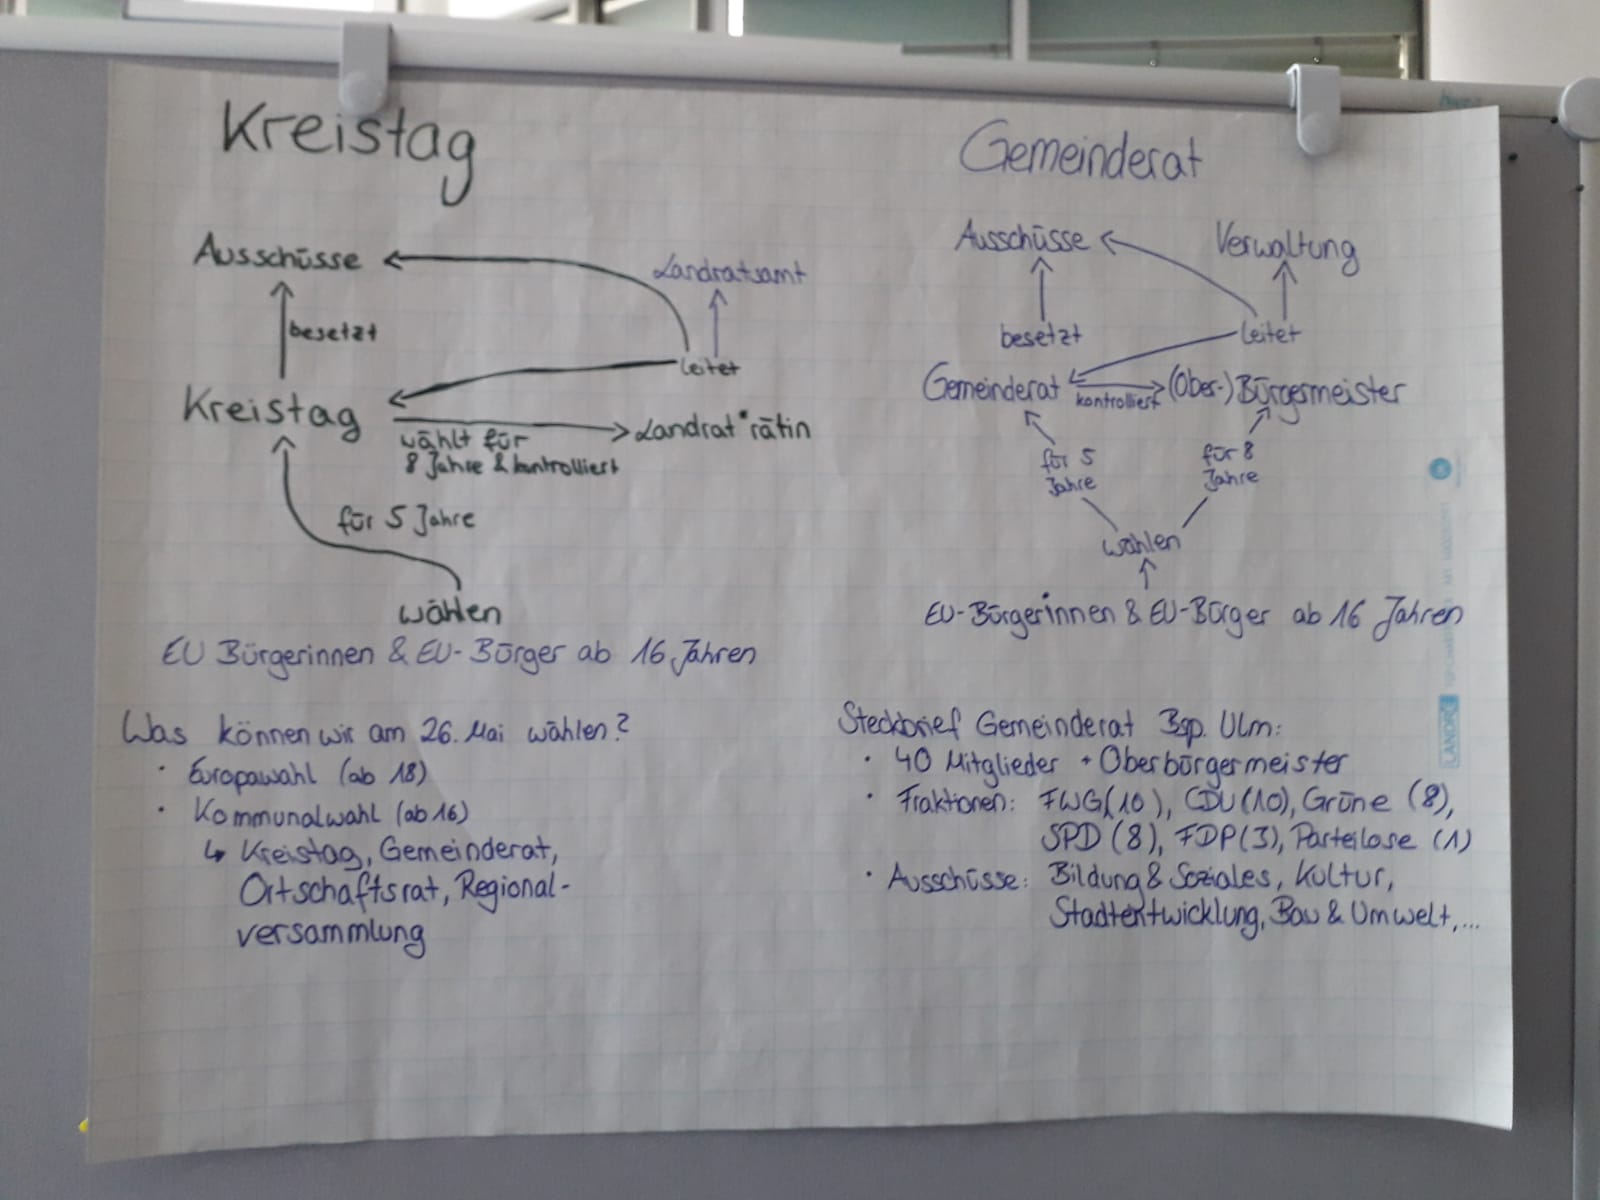 Kreistag
Ausschüsse
Landratsamt
besetzt
leitet
Kreistag
Landrat*rätin
wählt für
8 Jahre & kontrolliert
für 5 Jahre
wählen
EU Bürgerinnen & EU-Bürger ab 16 Jahren
Was können wir am 26. Mai wählen?
· Europawahl (ab 18)
· Kommunalwahl (ab 16)
↳ Kreistag, Gemeinderat,
Ortschaftsrat, Regional-
versammlung
Gemeinderat
Ausschüsse
Verwaltung
besetzt
leitet
Gemeinderat
kontrolliert
(Ober-) Bürgermeister
für 5
Jahre
für 8
Jahre
wählen
EU-Bürgerinnen & EU-Bürger ab 16 Jahren
Steckbrief Gemeinderat Bsp. Ulm:
· 40 Mitglieder + Oberbürgermeister
· Fraktionen: FWG(10), CDU(10), Grüne (8),
SPD (8), FDP(3), Parteilose (1)
· Ausschüsse: Bildung & Soziales, Kultur,
Stadtentwicklung, Bau & Umwelt,...
LANDRÉ